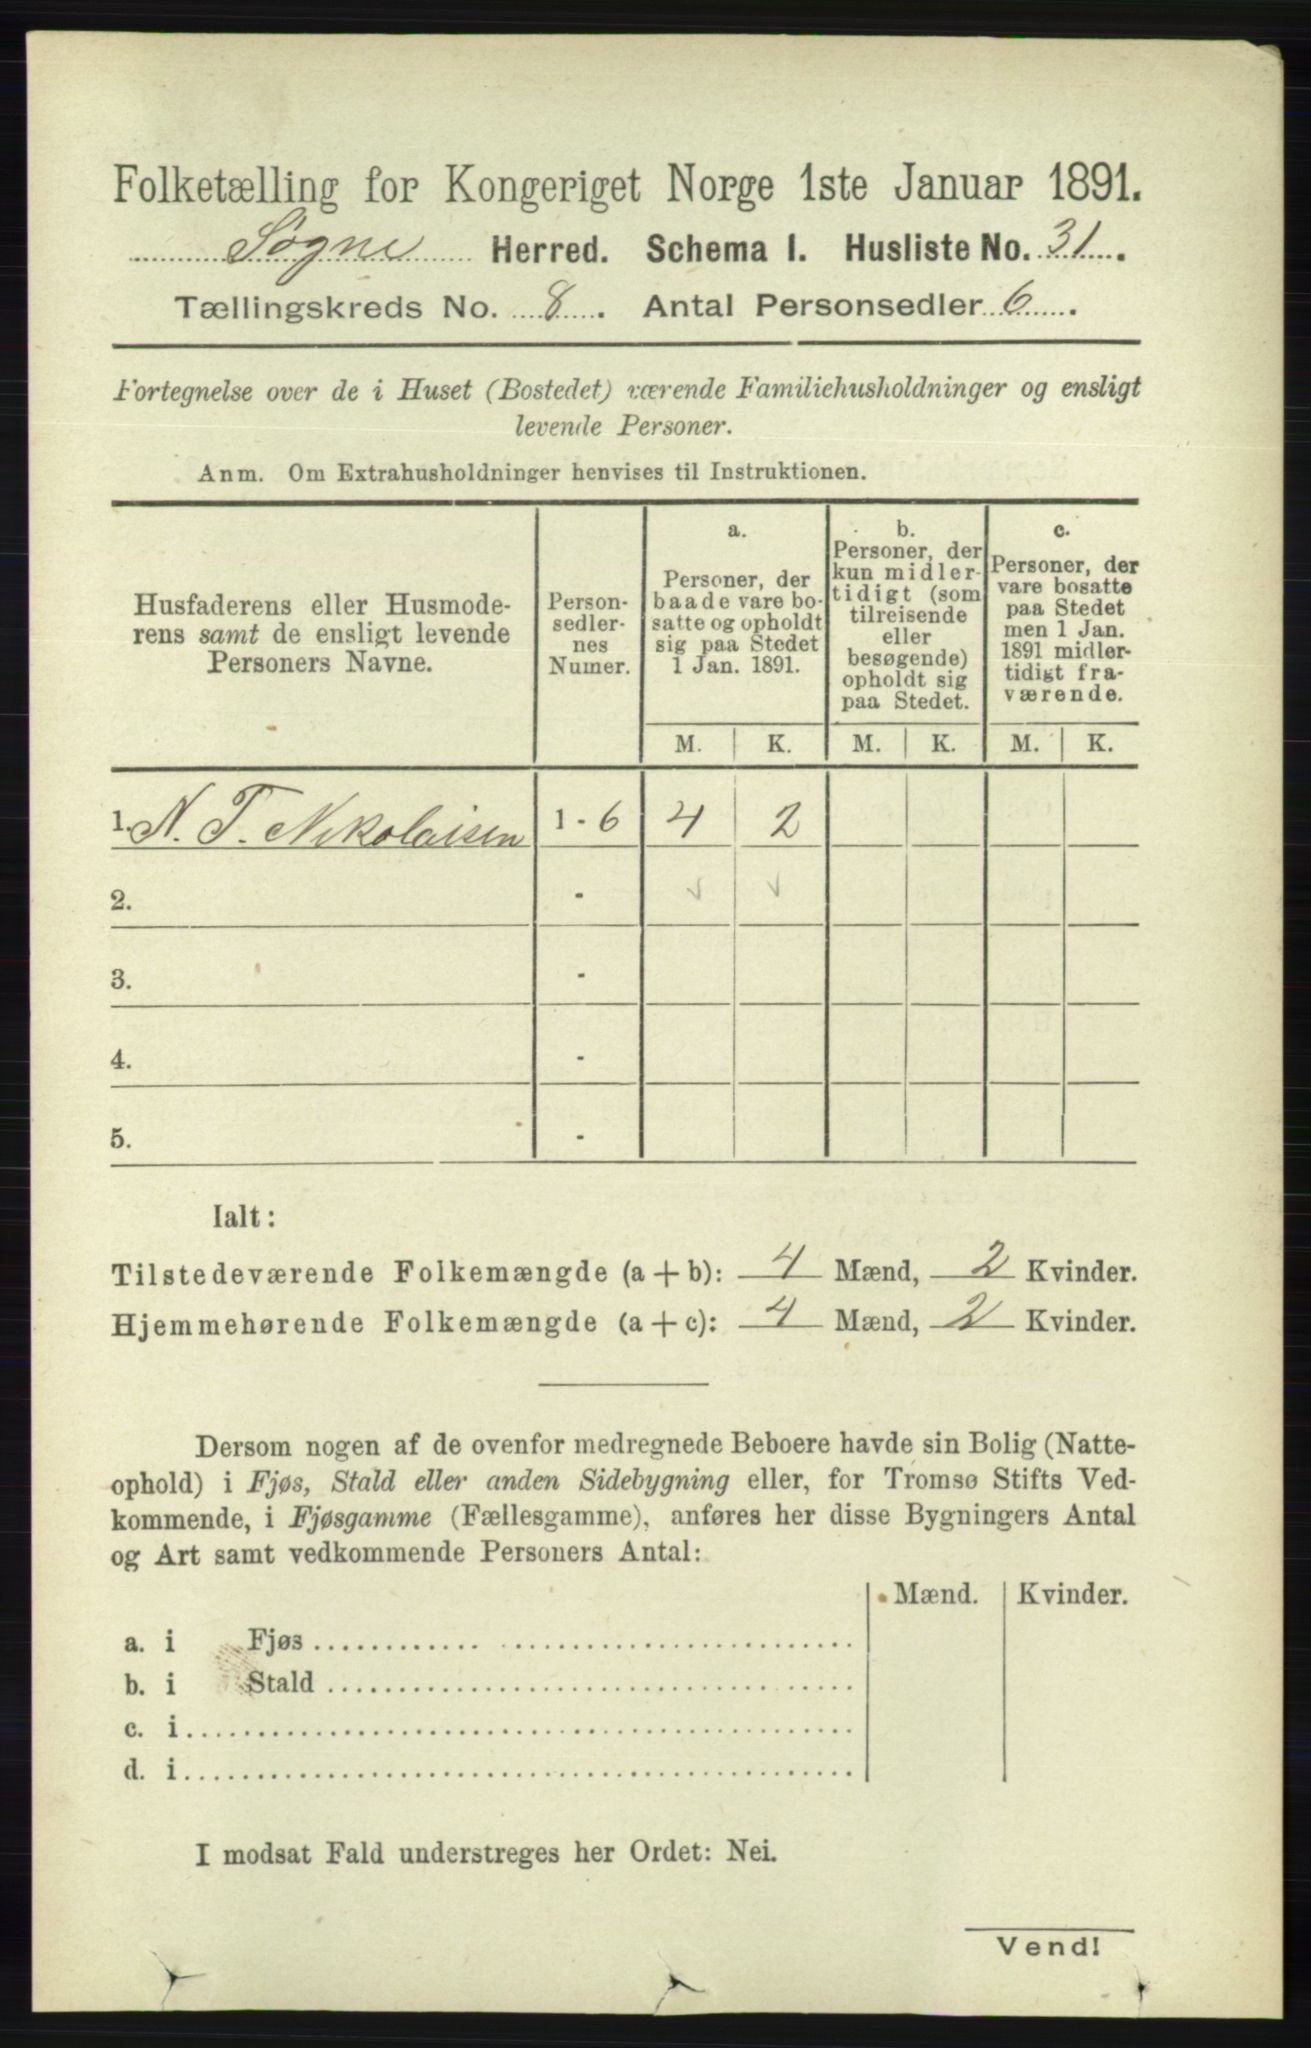 Folketælling for Kongeriget Norge 1ste Januar 1891.
Søgne Herred. Schema I. Husliste No. 31.
Tællingskreds No. 8. Antal Personsedler 6.
Fortegnelse over de i Huset (Bostedet) værende Familiehusholdninger og ensligt
levende Personer.
Anm. Om Extrahusholdninger henvises til Instruktionen.
Husfaderens eller Husmode-
rens samt de ensligt levende
Personers Navne.
Person-
sedler-
nes
Numer.
a.
Personer, der
baade vare bo-
satte og opholdt
sig paa Stedet
1 Jan. 1891.
b.
Personer, der
kun midler-
tidigt (som
tilreisende
eller
besøgende)
opholdt sig
paa Stedet.
c.
Personer, der
vare bosatte
paa Stedet
men 1 Jan.
1891 midler-
tidigt fra-
værende.
M. K. M. K. M. K.
1. N. T. Nikolaisen 1-6 4 2
2. -
3. -
4. -
5. -
Ialt:
Tilstedeværende Folkemængde (a + b): 4 Mænd, 2 Kvinder.
Hjemmehørende Folkemængde (a + c): 4 Mænd, 2 Kvinder.
Dersom nogen af de ovenfor medregnede Beboere havde sin Bolig (Natte-
ophold) i Fjøs, Stald eller anden Sidebygning eller, for Tromsø Stifts Ved-
kommende, i Fjøsgamme (Fællesgamme), anføres her disse Bygningers Antal
og Art samt vedkommende Personers Antal:
Mænd. Kvinder.
a. i Fjøs
b. i Stald
c. i
d. i
I modsat Fald understreges her Ordet: Nei.
Vend!